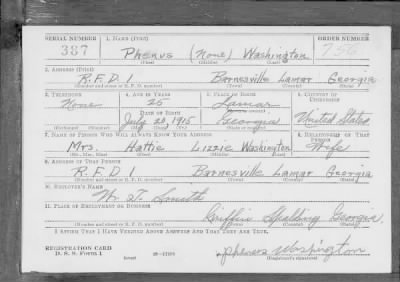 SERIAL NUMBER 1. NAME (Print) ORDER NUMBER
387 Phenus (none) Washington 756
(First) (Middle) (Last)
2. ADDRESS (Print)
R.F.D 1 Barnesville Lamar Georgia
(Number and street or R. F. D. number) (Town) (County) (State)
3. TELEPHONE 4. AGE IN YEARS 5. PLACE OF BIRTH 6. COUNTRY OF CITIZENSHIP
None 25 Lamar
DATE OF BIRTH (Town or county)
July 20, 1915 Georgia United States
(Exchange) (Number) (Mo.) (Day) (Yr.) (State or country)
7. NAME OF PERSON WHO WILL ALWAYS KNOW YOUR ADDRESS 8. RELATIONSHIP OF THAT PERSON
Mrs. Hattie Lizzie Washington Wife
(Mr., Mrs., Miss) (First) (Middle) (Last)
9. ADDRESS OF THAT PERSON
R.F.D 1 Barnesville Lamar Georgia
(Number and street or R. F. D. number) (Town) (County) (State)
10. EMPLOYER'S NAME
W. T. Smith
11. PLACE OF EMPLOYMENT OR BUSINESS
Griffin Spalding Georgia
(Number and street or R. F. D. number) (Town) (County) (State)
I AFFIRM THAT I HAVE VERIFIED ABOVE ANSWERS AND THAT THEY ARE TRUE.
REGISTRATION CARD
D. S. S. Form 1 phenus Washington
(over) (Registrant's signature)